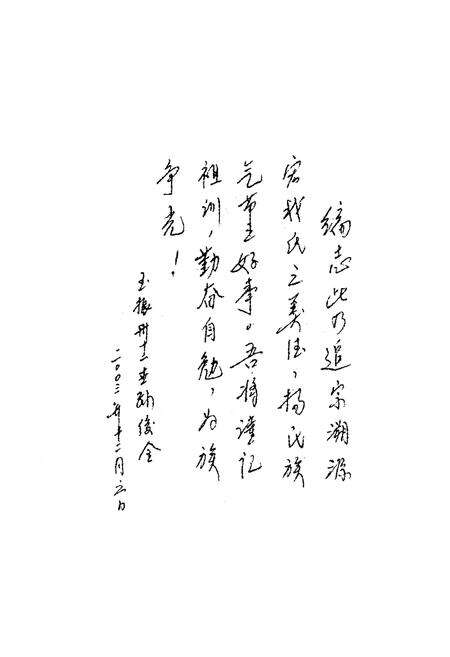 编志此乃追宗溯源
宏我氏之美德，扬民族
气节之好事。吾将谨记
祖训，勤奋自勉，为族
争光！
玉振卅十二世孙俊全
二〇〇三年十二月六日